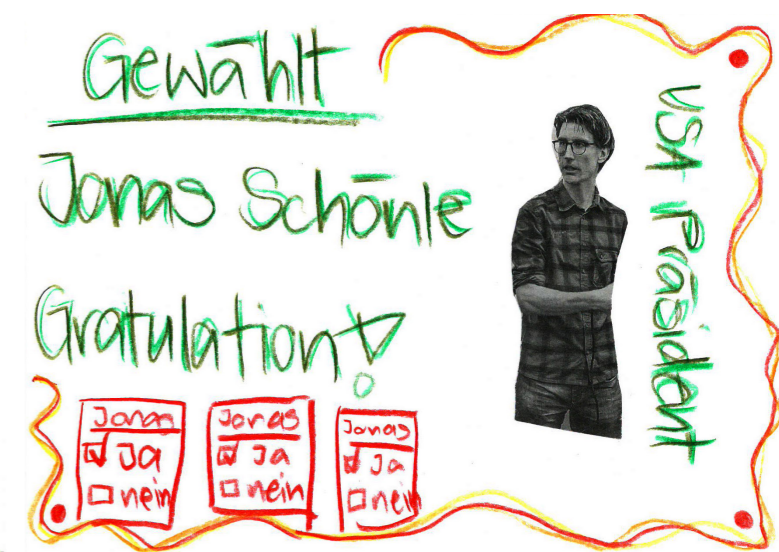 Gewählt
Jonas Schönle
Gratulation!
VSA Präsident
Jonas
☑ Ja
☐ nein
Jonas
☑ Ja
☐ nein
Jonas
☑ Ja
☐ nein